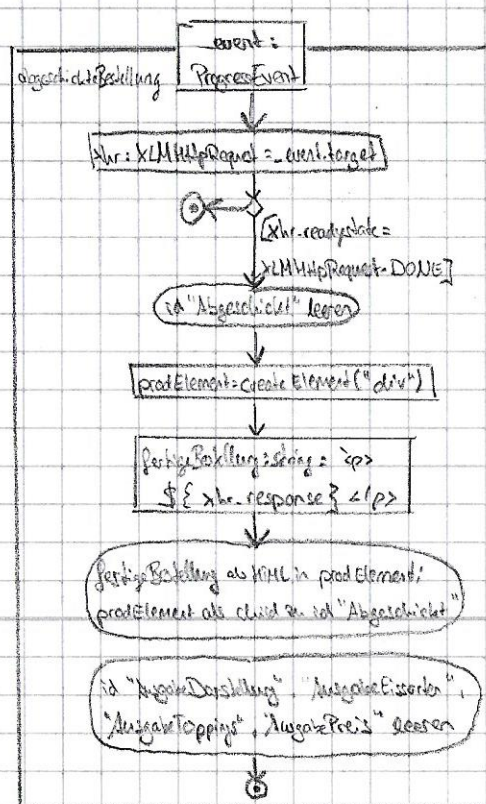 event :
ProgressEvent
abgeschickteBestellung
xhr : XLMHttpRequest = _event.target
[xhr.readystate =
XLMHttpRequest.DONE]
id "Abgeschickt" leeren
prodElement = createElement("div")
fertigeBestellung : string = `<p>
${ xhr.response } </p>
fertigeBestellung als HTML in prodElement;
prodElement als child zu id "Abgeschickt"
id "AusgabeDarstellung", "AusgabeEissorten",
"AusgabeToppings", "AusgabePreis" leeren